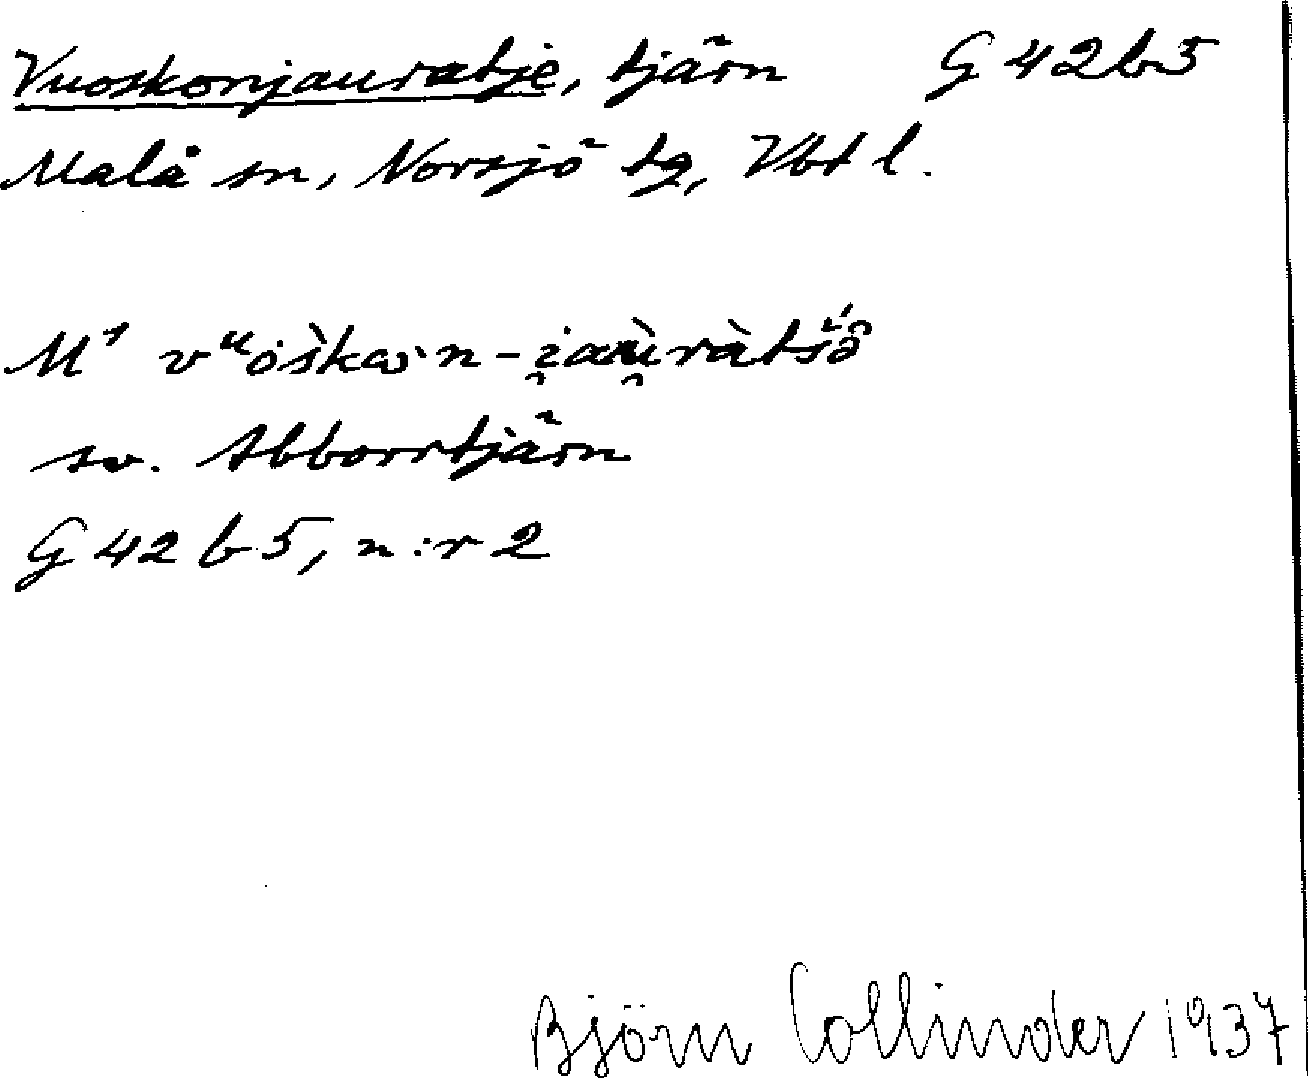 Vuoskonjauratje, tjärn G42b5
Malå sn, Norsjö tg, Vbt l.
M¹
sv. Abborrtjärn
G 42 b 5, n:r 2
Björn Collinder 1937